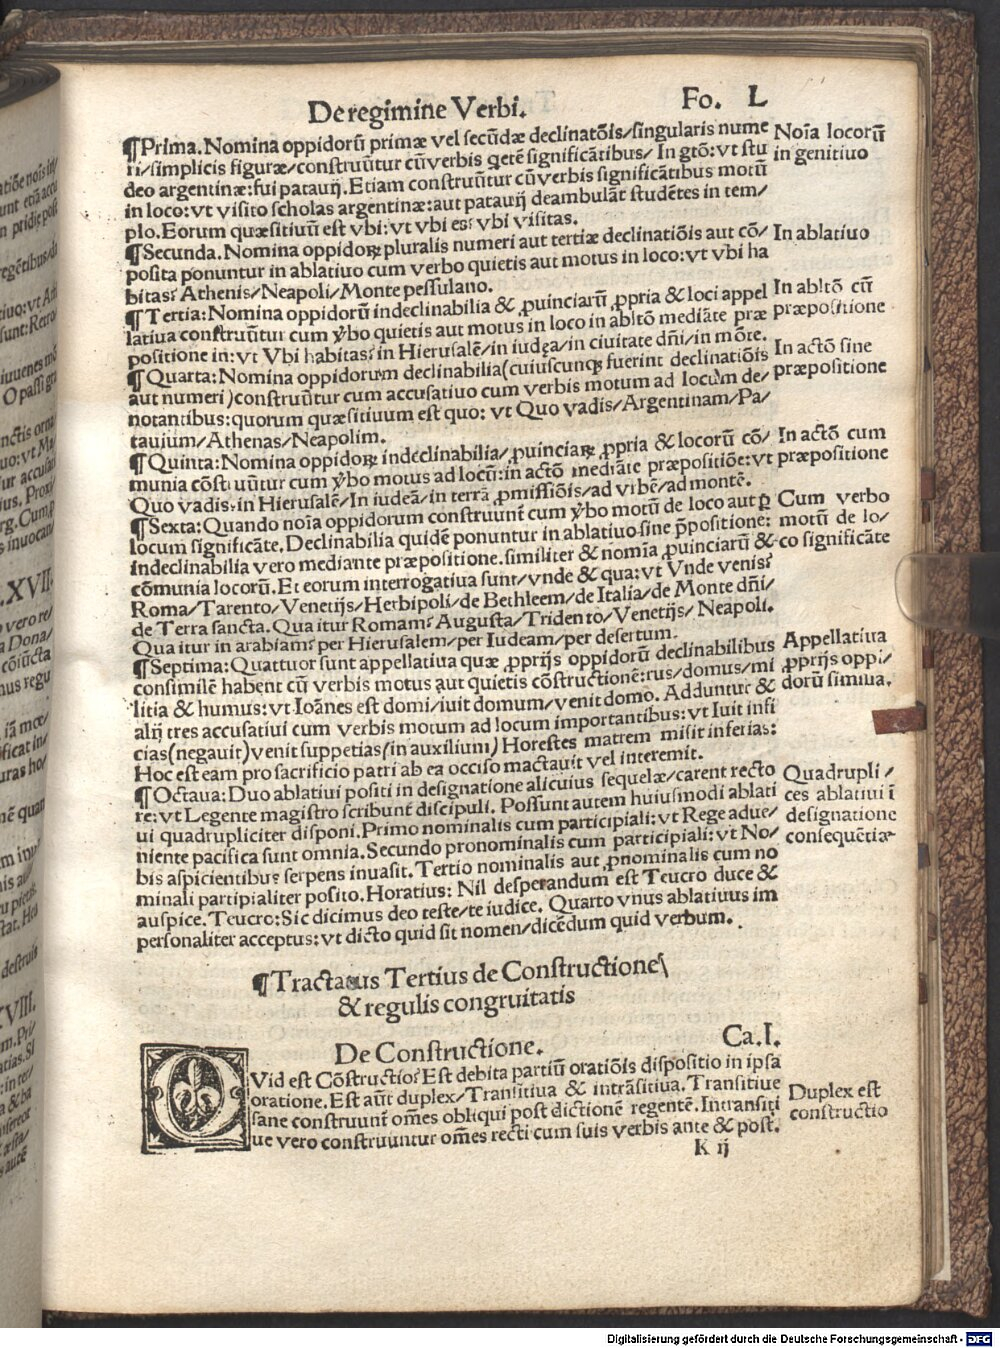 De regimine Verbi.
Fo. L
¶Prima. Nomina oppidorũ primæ vel secũdæ declinatõis/singularis nume
ri/simplicis figuræ/construũtur cũ verbis qetẽ significãtibus/ In gtõ: vt stu
deo argentinæ: fui patauij. Etiam construũtur cũ verbis significãtibus motũ
in loco: vt visito scholas argentinæ: aut patauij deambulãt studẽtes in tem/
plo. Eorum quæsitiuũ est vbi: vt vbi es? vbi visitas.
Noĩa locorũ
in genitiuo
¶Secunda. Nomina oppidoꝝ pluralis numeri aut tertiæ declinatiõis aut cõ/
posita ponuntur in ablatiuo cum verbo quietis aut motus in loco: vt vbi ha
bitas? Athenis/Neapoli/Monte pessulano.
In ablatiuo
¶Tertia: Nomina oppidorũ indeclinabilia & ꝓuinciarũ ꝓpria & loci appel
latiua construũtur cum ỹbo quietis aut motus in loco in abltõ mediãte præ
positione in: vt Vbi habitas? in Hierusalẽ/in iudęa/in ciuitate dñi/in mõte.
In abltõ cũ
præpositione
¶Quarta: Nomina oppidorum declinabilia(cuiuscunqꝫ fuerint declinatiõis
aut numeri)construũtur cum accusatiuo cum verbis motum ad locum de/
notantibus: quorum quæsitiuum est quo: vt Quo vadis/Argentinam/Pa/
tauium/Athenas/Neapolim.
In actõ sine
præpositione
¶Quinta: Nomina oppidoꝝ indeclinabilia/ꝓuinciaꝝ ꝓpria & locorũ cõ/
munia cõstruũtur cum ỹbo motus ad locũ: in actõ mediãte præpositiõe: vt
Quo vadis? in Hierusalẽ/In iudeã/in terrã ꝓmissiõis/ad vrbẽ/ad montẽ.
In actõ cum
præpositione
¶Sexta: Quando noĩa oppidorum construunt̃ cum ỹbo motũ de loco aut ꝑ
locum significãte. Declinabilia quidẽ ponuntur in ablatiuo sine p̃positione:
indeclinabilia vero mediante præpositione. similiter & nomĩa ꝓuinciarũ &
cõmunia locorũ. Et eorum interrogatiua sunt/vnde & qua: vt Vnde venis?
Roma/Tarento/Venetijs/Herbipoli/de Bethleem/de Italia/de Monte dñi/
de Terra sancta. Qua itur Romam? Augusta/Tridento/Venetijs/Neapoli.
Qua itur in arabiam? per Hierusalem/per Iudeam/per desertum.
Cum verbo
motũ de lo/
co significãte
¶Septima: Quattuor sunt appellatiua quæ ꝓprijs oppidorũ declinabilibus
consimilẽ habent cũ verbis motus aut quietis cõstructionẽ: rus/domus/mi
litia & humus: vt Ioãnes est domi/iuit domum/venit domo. Adduntur &
alij tres accusatiui cum verbis motum ad locum importantibus: vt Iuit infi
cias(negauit)venit suppetias(in auxilium) Horestes matrem misit inferias:
Hoc est eam pro sacrificio patri ab ea occiso mactauit vel interemit.
Appellatiua
ꝓprijs oppi/
dorũ similia.
¶Octaua: Duo ablatiui positi in designatione alicuius sequelæ/carent recto
re: vt Legente magistro scribunt discipuli. Possunt autem huiusmodi ablati
ui quadrupliciter disponi. Primo nominalis cum participiali: vt Rege adue/
niente pacifica sunt omnia. Secundo pronominalis cum participiali: vt No/
bis aspicientibus serpens inuasit. Tertio nominalis aut ꝓnominalis cum no
minali partipialiter posito. Horatius: Nil desperandum est Teucro duce &
auspice. Teucro: Sic dicimus deo teste/te iudice. Quarto vnus ablatiuus im
personaliter acceptus: vt dicto quid sit nomen/dicẽdum quid verbum.
Quadrupli/
ces ablatiui ĩ
designatione
consequẽtiæ
¶Tractatus Tertius de Constructione
& regulis congruitatis
De Constructione.
Ca. I.
QVid est Cõstructio? Est debita partiũ oratiõis dispositio in ipsa
oratione. Est aũt duplex/Transitiua & intrãsitiua. Transitiue
sane construunt̃ oẽs obliqui post dictionẽ regentẽ. Intransiti
ue vero construuntur oẽs recti cum suis verbis ante & post.
Duplex est
constructio
K ij
Digitalisierung gefördert durch die Deutsche Forschungsgemeinschaft - DFG